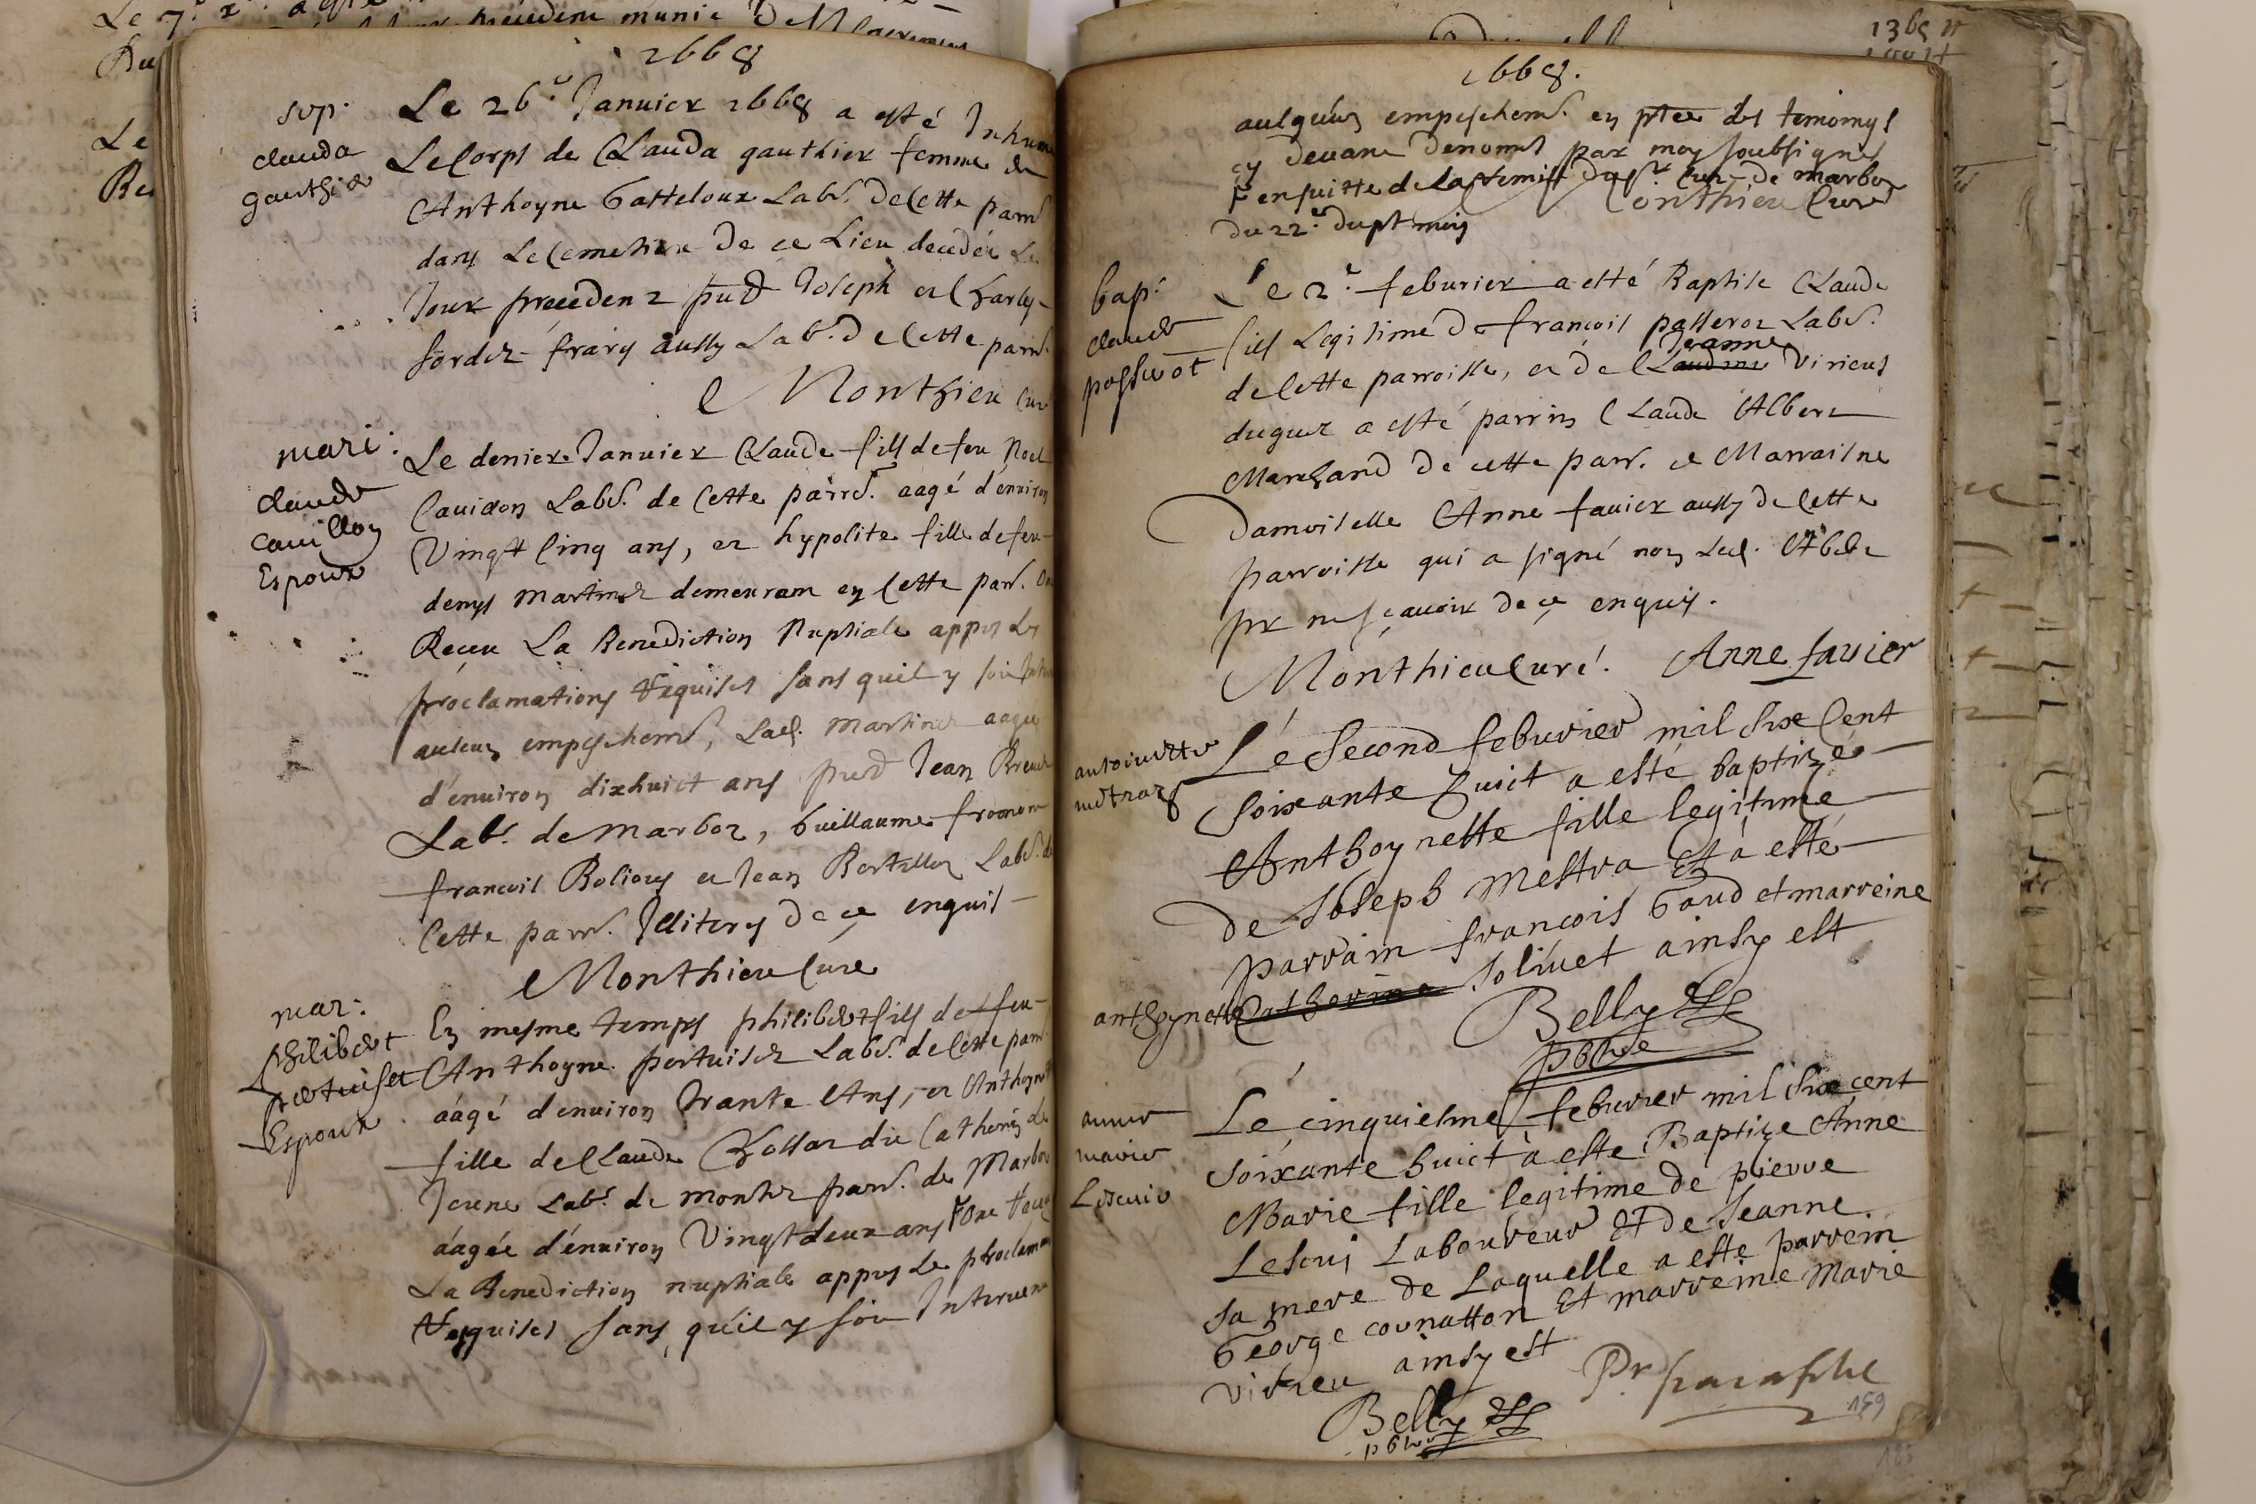 1668
sep.
clauda
gauthier
Le 26.e Janvier 1668 a esté Inhumé
Le Corps de Clauda gauthier femme de
Anthoyne Gatteloux Labr. de Cette parr.
dans Le Cemetiere de ce Lieu decedée Le
Jour precedent pnts Joseph et Charles
Sordet frairs aussy Labr. de Cette parr.
Monthieu Curé
mari:
claude
cavillon
Espoux
Le dernier Janvier Claude fils de feu Noel
Cavillon Labr. de Cette parr. aagé d'environ
Vingt Cinq ans, et hypolite fille de feu
denys Martinet demeurant en Cette parr. Ont
Receu La Benediction Nuptiale appres Les
proclamations Requises sans qu'il y soit
aulcun empeschemt, Lad. Martinet aagée
d'environ dixhuict ans pnts Jean
Labr. de Marboz, Guillaume fromont
francois Boliony et Jean Bertillon Labr. de
Cette parr. Illiterés de ce enquis
Monthieu Curé
mar:
philibert
pertuiset
Espoux
En mesme temps philibert fils de feu
Anthoyne pertuiset Labr. de Cette parr.
aagé d'environ Trante Ans, et Anthoynette
fille de Claude Chossat dit Cathenin le
Jeune Labr. de montet parr. de Marboz
aagée d'environ Vingt deux ans Ont Receu
La Benediction nuptiale appres Les proclamations
Requises sans qu'il y soit Intervenu
1668.
aulquun empeschemt. en pnce des temoings
cy devant denomés par moy soubsigné
& ensuitte de la remise du Sr. Curé de marboz
du 22.e dupt mois
Monthieu Curé
bap.
claude
passerot
Le 2.e feburier a esté Baptisé Claude
fils Legitime de francois passerot Labr.
Jeanne
de Cette parroisse, et de Claudine Virieux
duquel a esté parrin Claude Albert
Marchand de cette parr. et Marraisne
Damoiselle Anne favier aussy de Cette
parroisse qui a signé non Led. Albert
pr ne sçavoir de ce enquis.
Monthieu Curé. Anne favier
antoinette
metraz
Le second feburier mil six Cent
soixante huict a esté baptizé
Anthoynette fille legitime
de Joseph Mestra Et a esté
parrain francois Gaud et marreine
anthoynette Catherine solivet ainsy est
Belly
pbtre
anne
marie
Lescuio
Le cinquiesme feburier mil six cent
soixante huict a este Baptize Anne
Marie fille legitime de pierre
Lescuj Laboureur Et de Jeanne
sa mere de Laquelle a este parrein
George cornatton Et marreine Marie
Vitieu ainsy est
Belly
pbtre
Pr paraphe
159